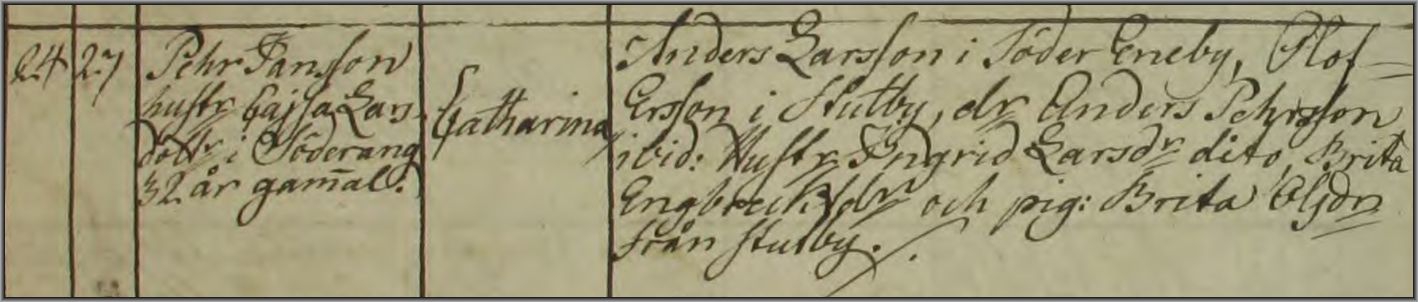 24 27
Pehr Jansson
hustr Cajsa Lars-
dottr i Söderäng
32 år gam̄al.
Catharina
Anders Larsson i Söder Eneby, Olof
Ersson i Stutby, dr Anders Pehrsson
ibid: Hustr Ingrid Larsdr dito, Brita
Engbrecktsdr och pig: Brita Olsdr
från Stutby.